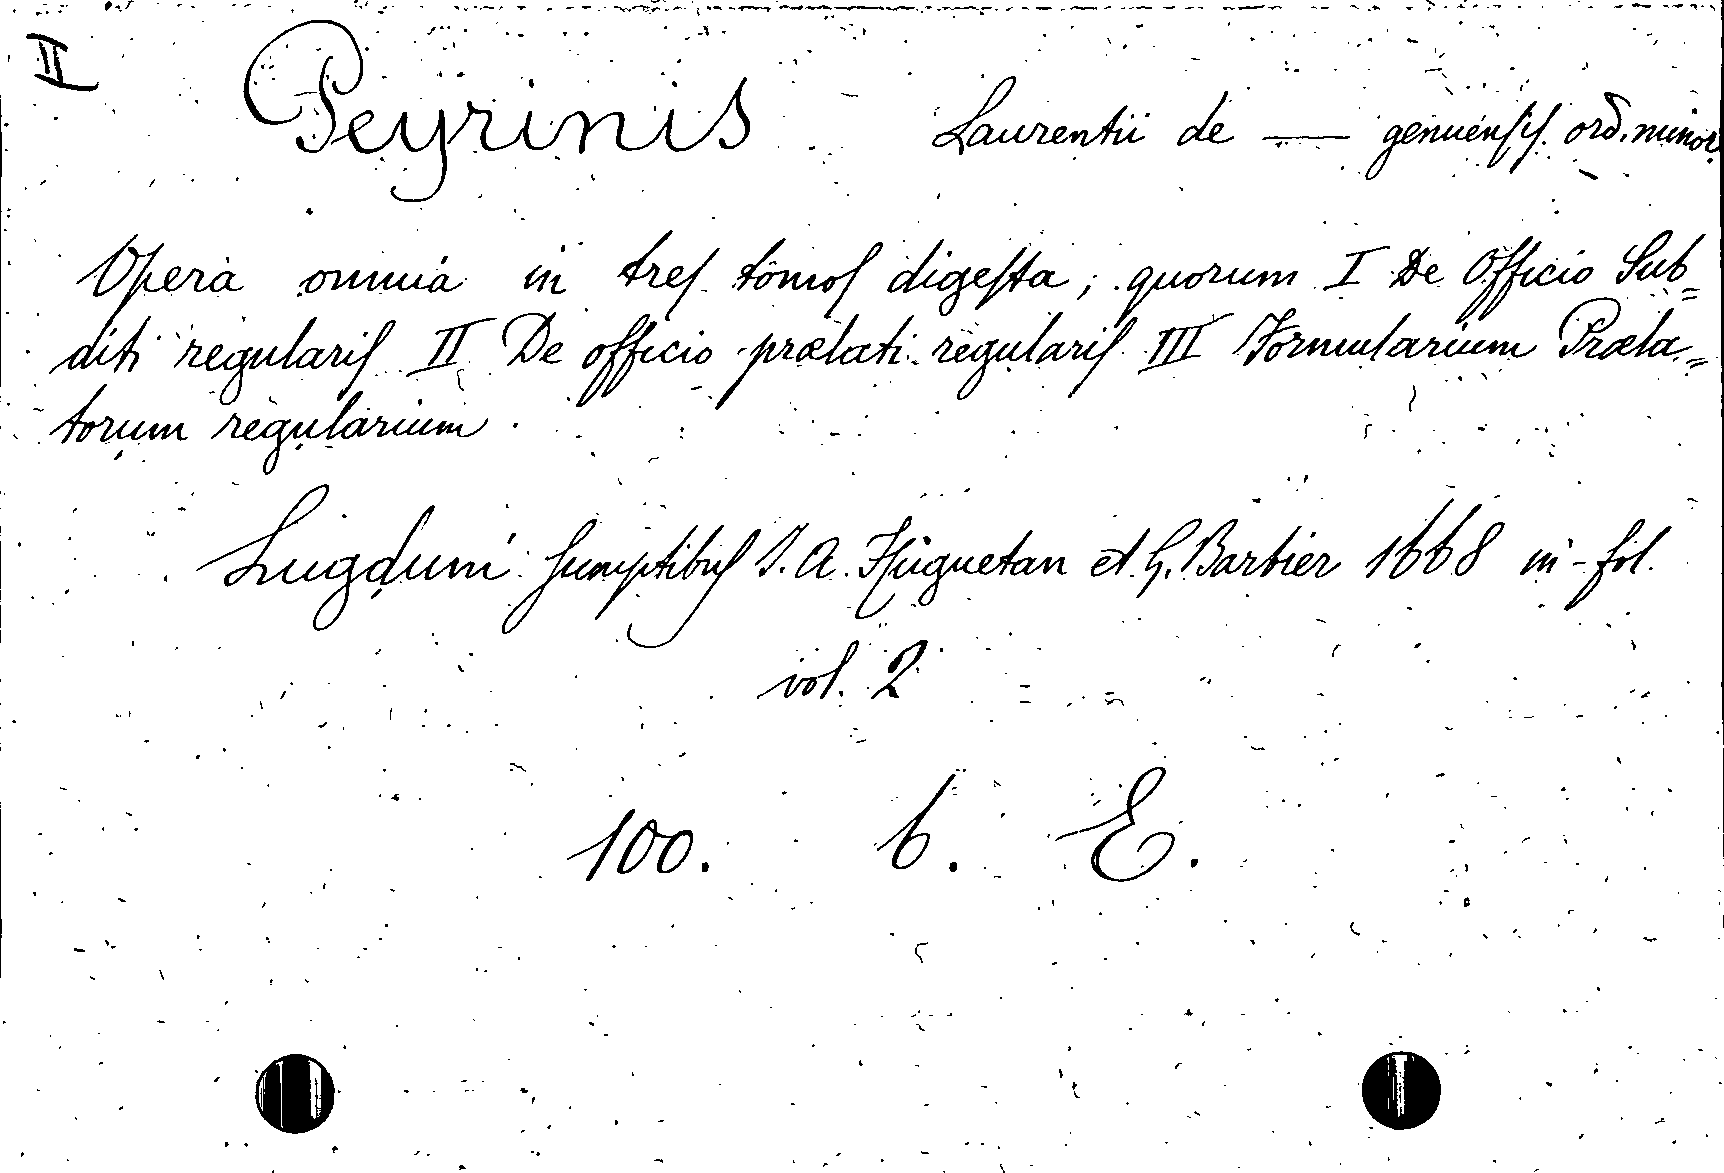 II
Peyrinis Laurentii de — genuensis. ord. minor.
Opera omnia in tres tomos digesta ; quorum I De Officio Sub=
diti regularis II De officio prælati regularis III Formularium Præla=
torum regularium
Lugduni sumptibus J. A. Huguetan et G. Barbier 1668 in-fol.
vol. 2
100. 6. E.